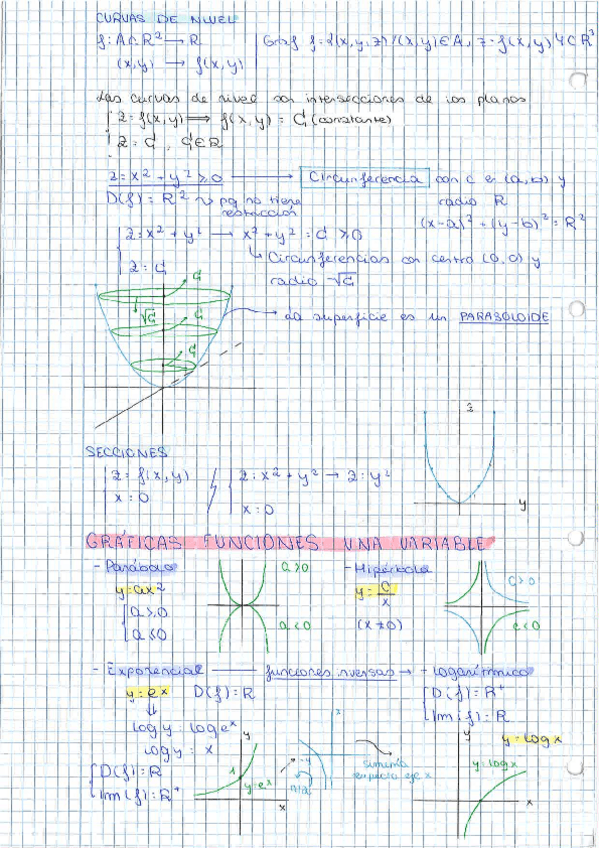 CURVAS DE NIVEL
f: A⊂R² → R | Graf f = {(x,y,z) / (x,y) ∈ A, z = f(x,y)} ⊂ R³
(x,y) → f(x,y)
Las curvas de nivel son intersecciones de los planos
z = f(x,y) ⟹ f(x,y) = C (constante)
z = C, C∈R
z = x² + y² ≥ 0 → Circunferencia con c en (a,b) y
D(f) = R² ~> pq no tiene restricción
radio R
(x-a)² + (y-b)² = R²
z = x² + y² → x² + y² = C ≥ 0
z = C
↳ Circunferencias con centro (0,0) y
radio √C
C
√C
C
C
La superficie es un PARABOLOIDE
z
y
SECCIONES
z = f(x,y)
x = 0
z = x² + y² → z = y²
x = 0
GRÁFICAS FUNCIONES UNA VARIABLE
- Parábola
y = ax²
a > 0
a < 0
a > 0
a < 0
- Hipérbola
y = c/x
(x ≠ 0)
c > 0
c < 0
- Exponencial — funciones inversas → - Logarítmica
y = eˣ D(f) = R
⇓
log y = log eˣ
log y = x
D(f) = R
Im(f) = R⁺
D(f) = R⁺
Im(f) = R
y = log x
y
1
y = eˣ
x
x
π/2
simetría
respecto eje x
y
y = log x
x